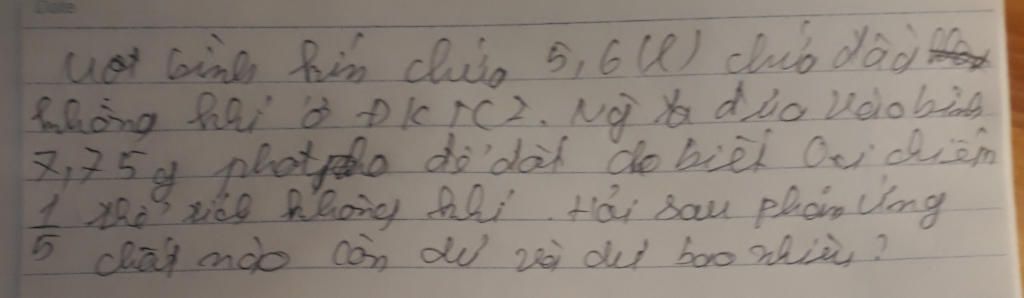 Date
Một bình kín chứa 5,6(l) chứa đầy
không khí ở ĐKTC2. Ng ta đưa vào bình
7,75g photpho để đốt cho biết Oxi chiếm
1/5 thể tích không khí. Hỏi sau phản ứng
chất nào còn dư và dư bao nhiêu?